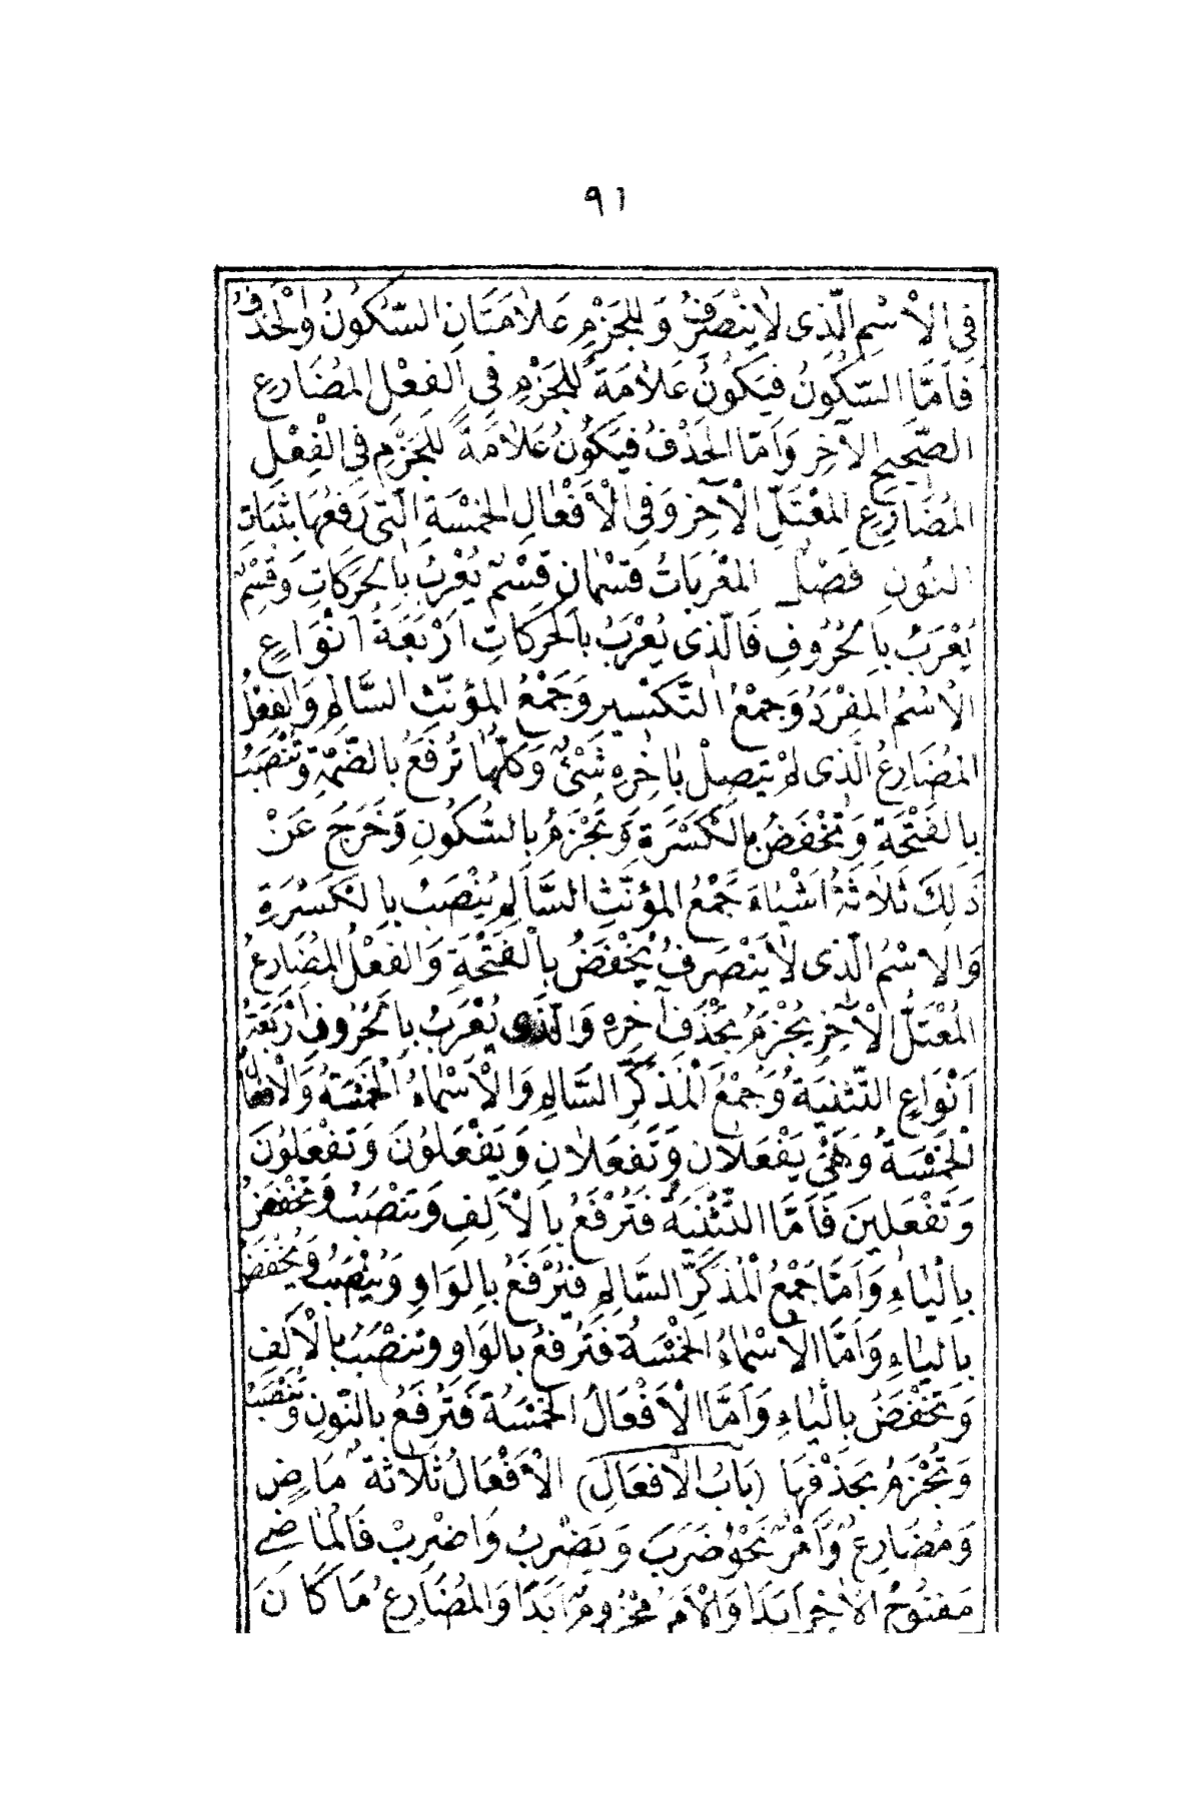 ٩١
فِى الْاِسْمِ الَّذى لاٰ يَنْصَرِفُ وَ لِلْجَزْمِ عَلاٰمَتَانِ السُّكُونُ وَالْحَذْفُ
فَاَمَّا السُّكُونُ فَيَكُونُ عَلاٰمَةً لِلْجَزْمِ فِى الْفِعْلِ الْمُضَارِعِ
الصَّحيحِ الْآخِرِ وَاَمَّا الْحَذْفُ فَيَكُونُ عَلاٰمَةً لِلْجَزْمِ فِى الْفِعْلِ
الْمُضَارِعِ الْمُعْتَلِّ الْآخِرِ وَفِى الْاَفْعٰالِ الْخَمْسَةِ الَّتى رَفْعُهَا بِثَبَاتِ
النُّونِ فَصْلٌ الْمُعْرَبَاتُ قِسْمٰانِ قِسْمٌ يُعْرَبُ بِالْحَرَكَاتِ وَقِسْمٌ
يُعْرَبُ بِالْحُرُوفِ فَالَّذى يُعْرَبُ بِالْحَرَكَاتِ اَرْبَعَةُ اَنْوَاعٍ
الْاِسْمُ الْمُفْرَدُ وَجَمْعُ التَّكْسيرِ وَجَمْعُ الْمُؤَنَّثِ السَّالِمِ وَالْفِعْلُ
الْمُضَارِعُ الَّذى لَمْ يَتَّصِلْ بِاٰخِرِهِ شَىْئٌ وَكُلُّهَا تُرْفَعُ بِالضَّمَّةِ وَتُنْصَبُ
بِالْفَتْحَةِ وَتُخْفَضُ بِالْكَسْرَةِ وَتُجْزَمُ بِالسُّكُونِ وَخَرَجَ عَنْ
ذٰلِكَ ثَلاٰثَةُ اَشْيٰاءَ جَمْعُ الْمُؤَنَّثِ السَّالِمِ يُنْصَبُ بِالْكَسْرَةِ
وَالْاِسْمُ الَّذى لاٰ يَنْصَرِفُ يُخْفَضُ بِالْفَتْحَةِ وَالْفِعْلُ الْمُضَارِعُ
الْمُعْتَلُّ الْآخِرِ يُجْزَمُ بِحَذْفِ آخِرِهِ وَالَّذى يُعْرَبُ بِالْحُرُوفِ اَرْبَعَةُ
اَنْوَاعٍ التَّثْنِيَةُ وَجَمْعُ الْمُذَكَّرِ السَّالِمِ وَالْاَسْمٰاءُ الْخَمْسَةُ وَالْاَفْعَالُ
الْخَمْسَةُ وَهِىَ يَفْعَلاٰنِ وَتَفْعَلاٰنِ وَيَفْعَلُونَ وَتَفْعَلُونَ
وَتَفْعَلينَ فَاَمَّا التَّثْنِيَةُ فَتُرْفَعُ بِالْاَلِفِ وَتُنْصَبُ وَتُخْفَضُ
بِالْيٰاءِ وَاَمَّا جَمْعُ الْمُذَكَّرِ السَّالِمِ فَيُرْفَعُ بِالْوَاوِ وَيُنْصَبُ وَيُخْفَضُ
بِالْيٰاءِ وَاَمَّا الْاَسْمٰاءُ الْخَمْسَةُ فَتُرْفَعُ بِالْوَاوِ وَتُنْصَبُ بِالْاَلِفِ
وَتُخْفَضُ بِالْيٰاءِ وَاَمَّا الْاَفْعَالُ الْخَمْسَةُ فَتُرْفَعُ بِالنُّونِ وَتُنْصَبُ
وَتُجْزَمُ بِحَذْفِهَا (بَابُ الْاَفْعَالِ) الْاَفْعَالُ ثَلاٰثَةٌ مَاضٍ
وَمُضَارِعٌ وَاَمْرٌ نَحْوُ ضَرَبَ وَيَضْرِبُ وَاضْرِبْ فَالْمٰاضى
مَفْتُوحُ الْاٰخِرِ اَبَدًا وَالْاَمْرُ مَجْزُومٌ اَبَدًا وَالْمُضَارِعُ مَا كَانَ